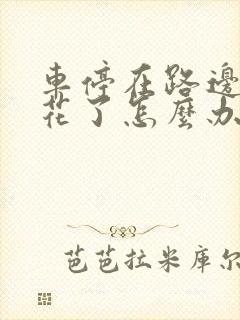 車停在路邊
花了怎麼办
芭芭拉米库尔